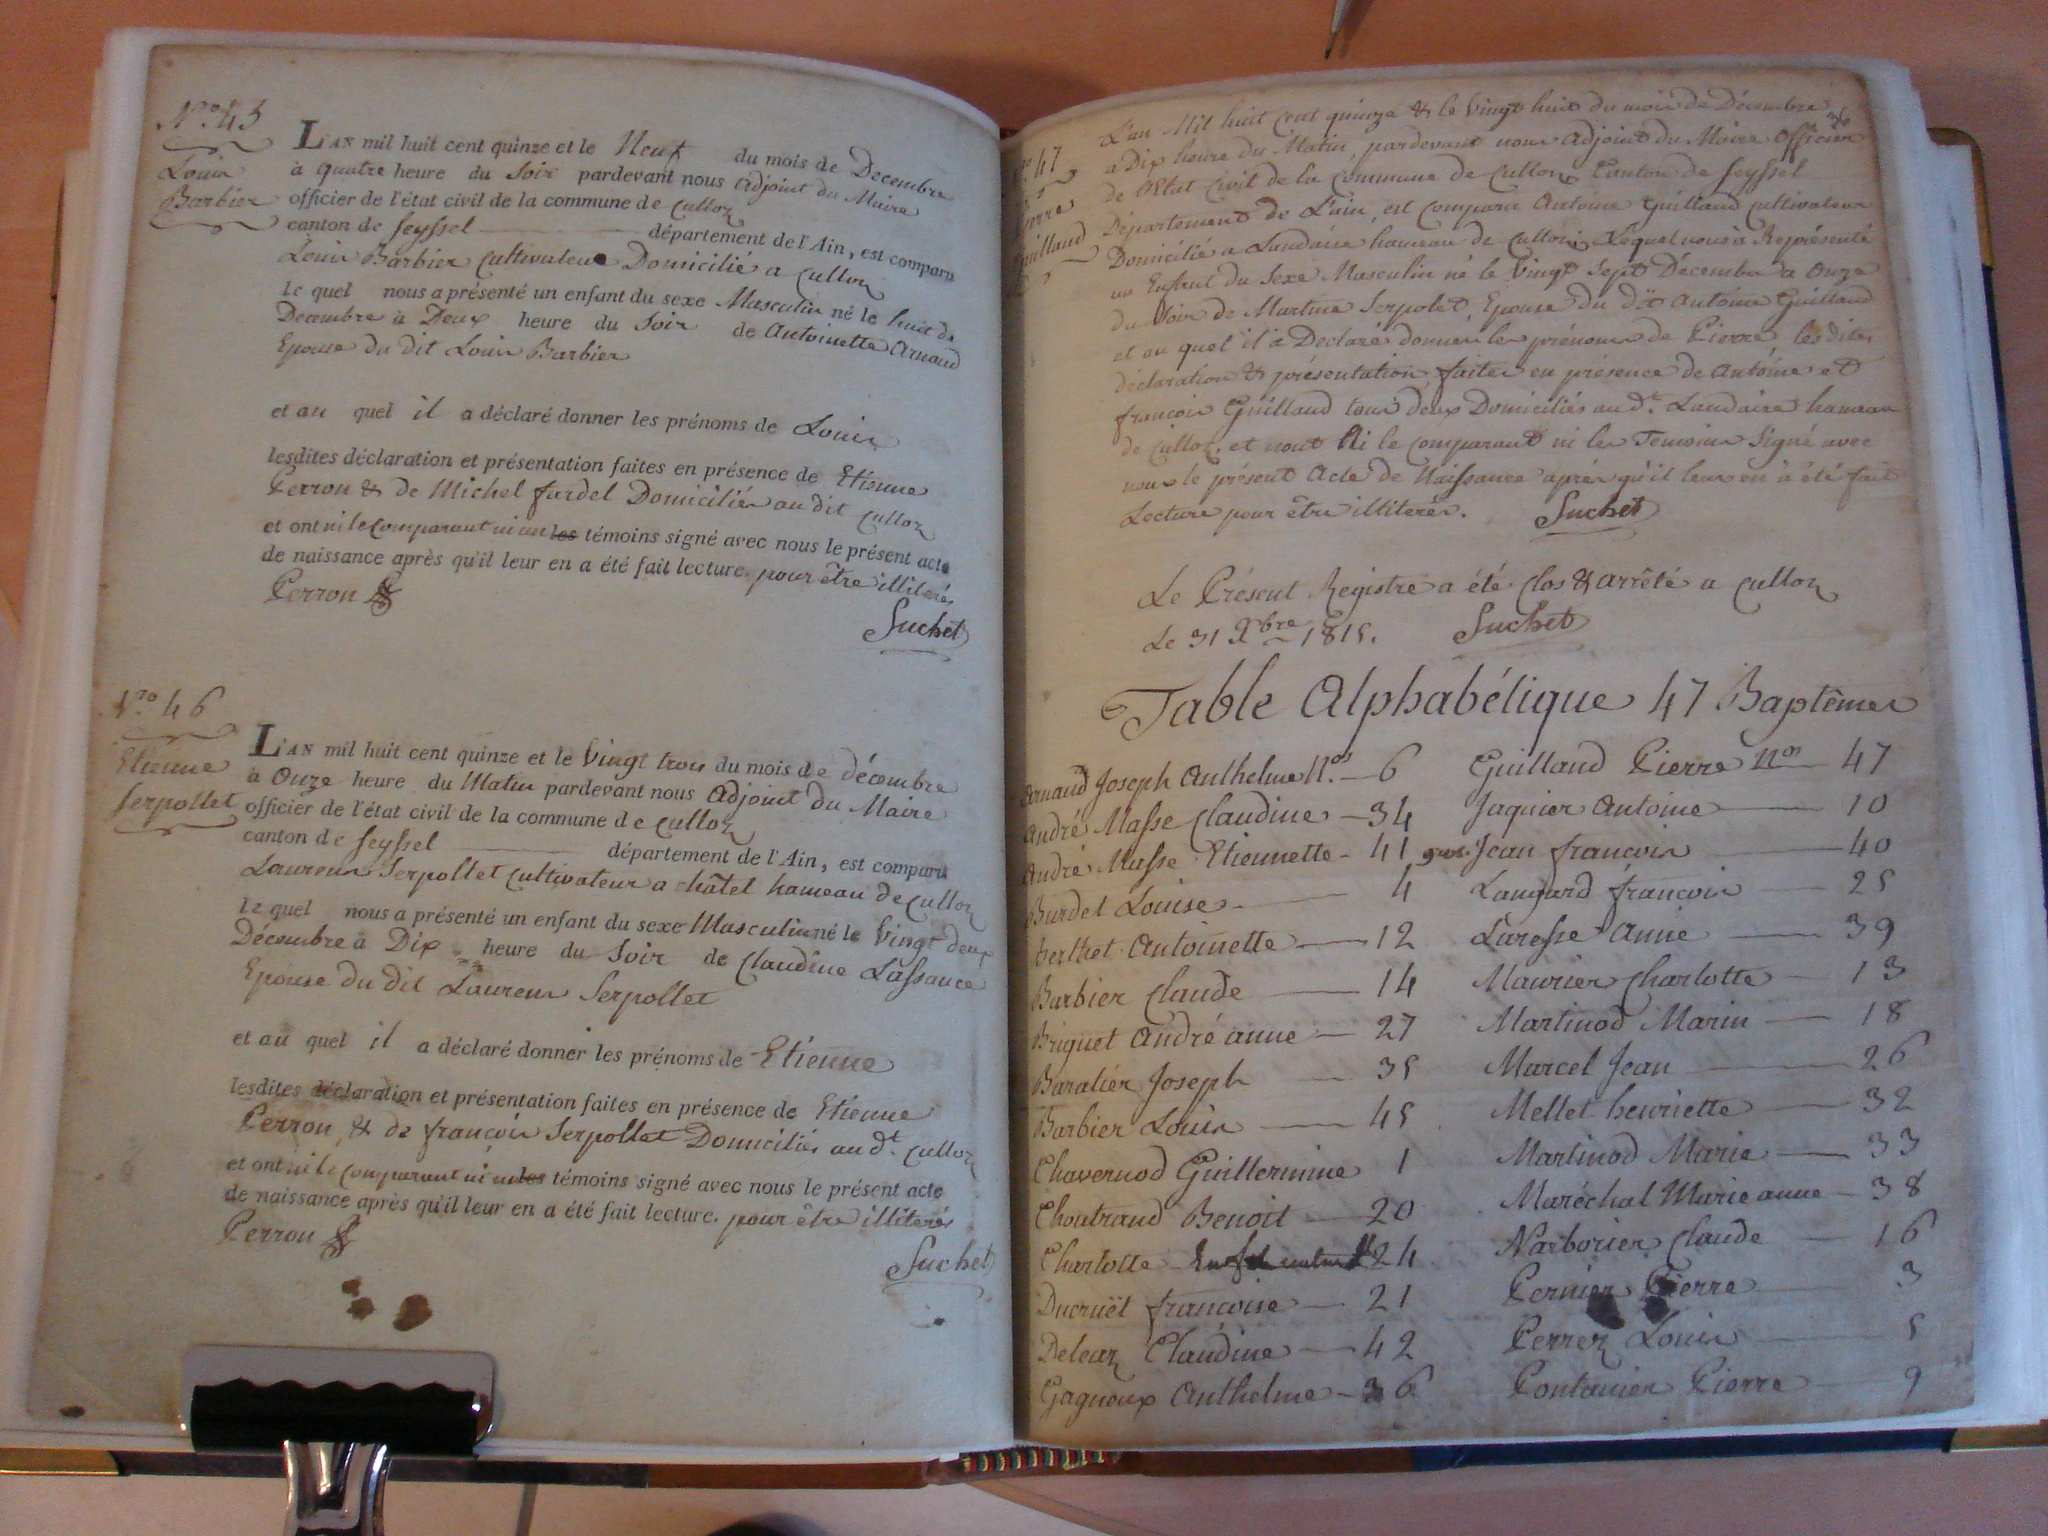 N.º 45
Louis
Barbier
L'AN mil huit cent quinze et le Neuf du mois de Decembre
à quatre heure du Soir pardevant nous adjoint du Maire
officier de l'état civil de la commune de Culloz
canton de Seyssel département de l'Ain, est comparu
Louis Barbier Cultivateur Domicilié a Culloz
le quel nous a présenté un enfant du sexe Masculin né le huit de
Decembre à Deux heure du Soir de Antoinette Arnaud
Epouse du dit Louis Barbier
et au quel il a déclaré donner les prénoms de Louis
lesdites déclaration et présentation faites en présence de Etienne
Perron & de Michel fardel Domiciliés au dit Culloz
et ont ni le comparant ni un les témoins signé avec nous le présent acte
de naissance après qu'il leur en a été fait lecture. pour être illiterés
Perron
Suchet
N.ro 46
Etienne
Serpollet
L'AN mil huit cent quinze et le Vingt trois du mois de décembre
à Onze heure du Matin pardevant nous Adjoint du Maire
officier de l'état civil de la commune de Culloz
canton de Seyssel département de l'Ain, est comparu
Laurens Serpollet cultivateur a châtel hameau de Culloz
le quel nous a présenté un enfant du sexe Masculin né le Vingt deux
Décembre à Dix heure du Soir de Claudine Lassance
Epouse du dit Laurens Serpollet
et au quel il a déclaré donner les prénoms de Etienne
lesdites déclaration et présentation faites en présence de Etienne
Perron & de françois Serpollet Domiciliés au d.t Culloz
et ont ni le comparant ni un les témoins signé avec nous le présent acte
de naissance après qu'il leur en a été fait lecture. pour être illiterés
Perron
Suchet
47
Pierre
Guilland
L'an Mil huit cent quinze & le Vingt huit du mois de Décembre
a Dix heure du Matin, pardevant nous Adjoint du Maire Officier
de l'Etat Civil de la Commune de Culloz Canton de Seyssel
Département de L'ain, est comparu Antoine Guilland cultivateur
Domicilié a Landaise hameau de Culloz, Lequel nous à Représenté
un Enfant du Sexe Masculin né le Vingt Sept Décembre a Onze
du Soir de Martine Serpolet, Epouse du dit Antoine Guilland
et au quel il à Declaré donner les prénoms de Pierre, les dites
déclaration & présentation faites en présence de Antoine et
françois Guilland tous deux Domiciliés au d.t Landaise hameau
de Culloz, et nont Ni le Comparant ni les Temoins Signé avec
nous le présent Acte de Naissance après qu'il leur en à été fait
Lecture pour être illiterés. Suchet
Le Présent Registre a été Clos & arrêté a Culloz
Le 31 Xbre 1815. Suchet
Table Alphabétique 47 Baptêmes
Arnaud Joseph Anthelme N.os 6
André Masse Claudine 34
André Masse Etiennette 41
Burdet Louise 4
Berthet Antoinette 12
Barbier Claude 14
Briguet André anne 27
Baratier Joseph 35
Barbier Louis 45
Chavernod Guillermine 1
Choutrand Benoit 20
Charlotte 24
Ducruët françoise 21
Deleaz Claudine 42
Gagneux Anthelme 36
Guilland Pierre N.os 47
Jaquier Antoine 10
Jean françois 40
Langard françois 25
Laresse Anne 39
Maurier Charlotte 13
Martinod Marin 18
Marcel Jean 26
Mellet henriette 32
Martinod Marie 33
Maréchal Marie anne 38
Narborier Claude 16
Pernier Pierre 3
Perrez Louis 5
Pontanier Pierre 9